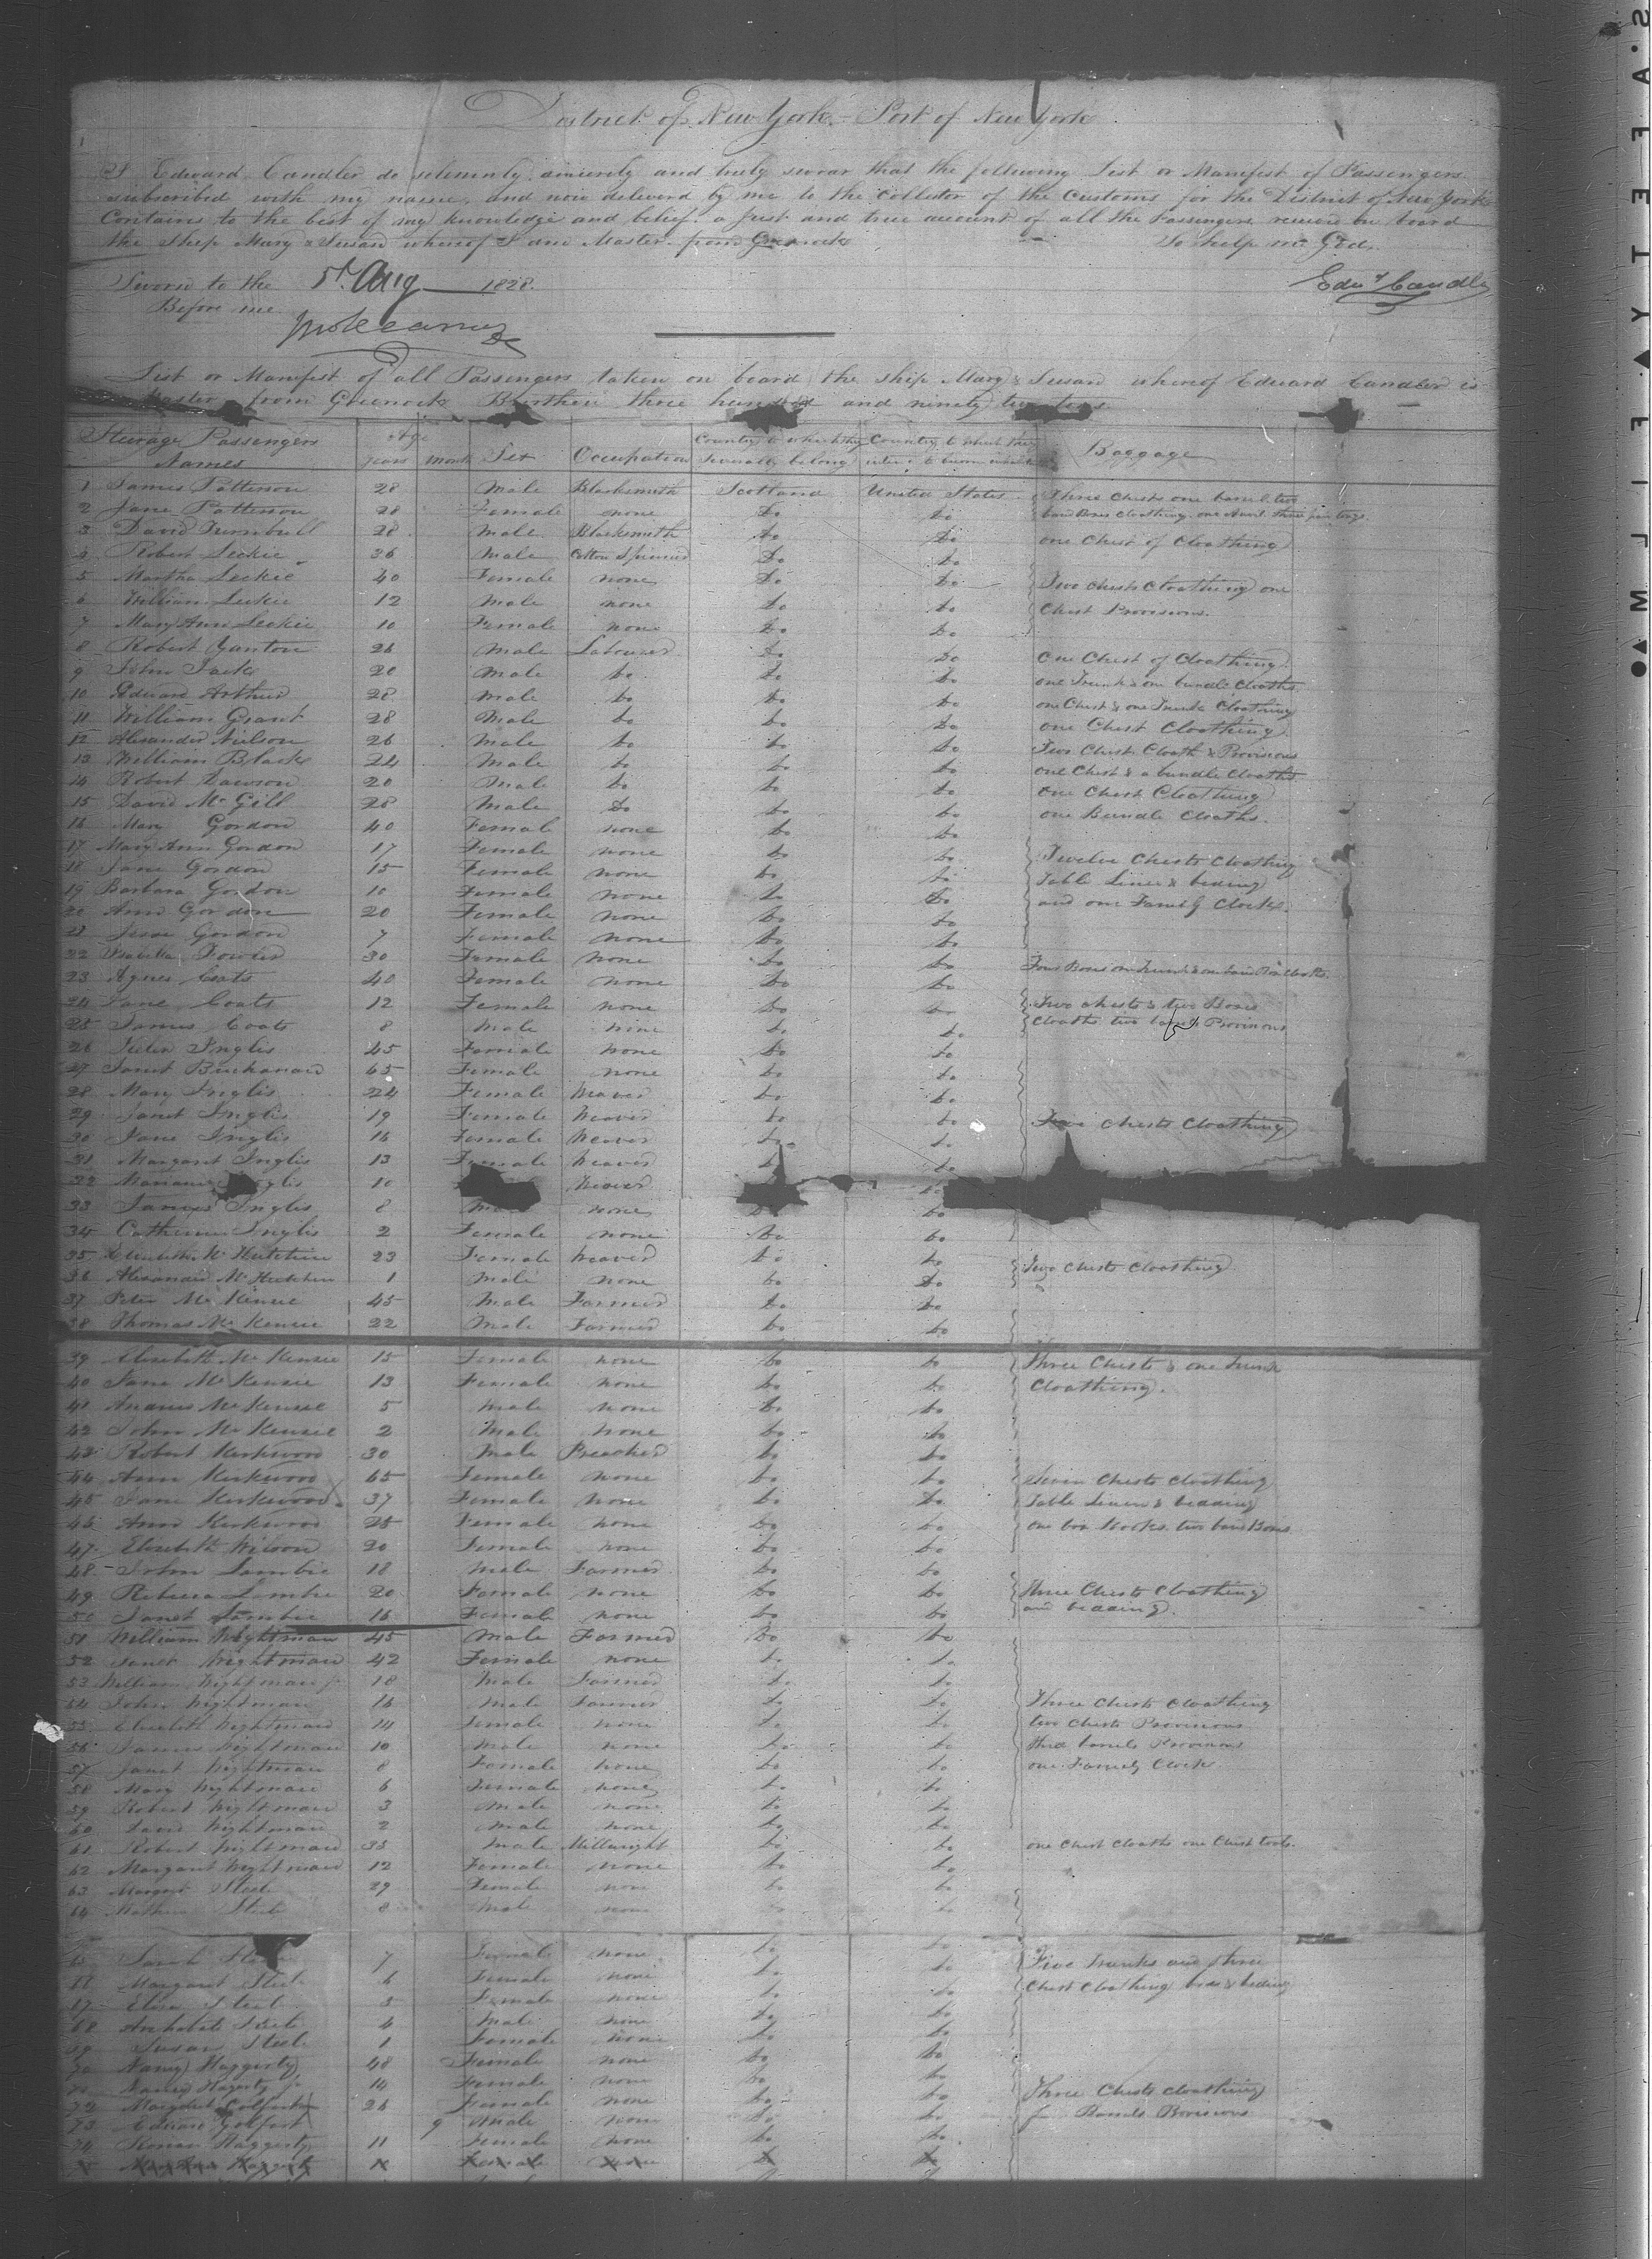 District of New York - Port of New York
I Edward Candler do solemnly, sincerely and truly swear that the following List or Manifest of Passengers
subscribed with my name, and now delivered by me to the Collector of the Customs for the District of New York
Contains to the best of my knowledge and belief a just and true account of all the Passengers received on board
the Ship Mary & Susan whereof I am Master from Greenock So help me God.
Sworn to the 5th Aug 1828. Edwd Candler
Before me
List or Manifest of all Passengers taken on board the ship Mary & Susan whereof Edward Candler is
Master from Greenock Burthen three hundred and ninety two tons.
Steerage Passengers Names Age years month Sex Occupation Country to which they severally belong Country to which they intend to become Baggage
1 James Patterson 28 Male Blacksmith Scotland United States Three Chests one barrel two
2 Jane Patterson 28 Female none Do Do
3 David Turnbull 28 Male Blacksmith Do Do one Chest of Cloathing
4 Robert Leckie 36 Male Cotton Spinner Do Do
5 Martha Leckie 40 Female none Do Do Two Chests Cloathing one
6 William Leckie 12 Male none Do Do Chest Provisions.
7 Mary Ann Leckie 10 Female none Do Do
8 Robert 26 Male Labourer Do Do One Chest of Cloathing
9 John Jack 20 Male Do Do Do one Trunk & one bundle Cloaths
10 Edward Arthur 28 Male Do Do Do one Chest & one Trunk Cloathing
11 William Grant 28 Male Do Do Do one Chest Cloathing
12 Alexander Neilson 26 Male Do Do Do Two Chest Cloath & Provisions
13 William Black 24 Male Do Do Do one Chest & a bundle Cloaths
14 Robert Dawson 20 Male Do Do Do one Chest Cloathing
15 David McGill 28 Male Do Do Do one Bundle Cloaths.
16 Mary Gordon 40 Female none Do Do
17 Mary Ann Gordon 17 Female none Do Do Twelve Chests Cloathing
18 Jane Gordon 15 Female none Do Do Table Linen & beding
19 Barbara Gordon 10 Female none Do Do and one Family Clock.
20 Ann Gordon 20 Female none Do Do
21 Jesse Gordon 7 Female none Do Do
22 Isabella Fowler 30 Female none Do Do
23 Agnes Coats 40 Female none Do Do
24 Jane Coats 12 Female none Do Do Two chests & two Boxes
25 James Coats 8 Male none Do Do Cloaths two barrels Provisions
26 Inglis 45 Female none Do Do
27 Janet Buchanan 65 Female none Do Do
28 Mary Inglis 24 Female Weaver Do Do
29 Janet Inglis 19 Female Weaver Do Do Two Chests Cloathing
30 Jane Inglis 16 Female Weaver Do Do
31 Margaret Inglis 13 Female Weaver Do
32 10 Weaver Do
33 James Inglis 8 none Do Do
34 Catherine Inglis 2 Female none Do Do
35 Elizabeth McHutchin 23 Female Weaver Do Do Two Chests Cloathing
36 Alexander McHutchin 1 Male none Do Do
37 Peter McKensie 45 Male Farmer Do Do
38 Thomas McKensie 22 Male Farmer Do Do
39 Elizabeth McKensie 15 Female none Do Do Three Chests & one Trunk
40 Jane McKensie 13 Female none Do Do Cloathing.
41 McKensie 5 Male none Do Do
42 John McKensie 2 Male none Do Do
43 Robert Kirkwood 30 Male Preacher Do Do
44 Ann Kirkwood 65 Female none Do Do Seven Chests Cloathing
45 Jane Kirkwood 37 Female none Do Do Table Linen & bedding
46 Ann Kirkwood 25 Female none Do Do one box Books two
47 Elizabeth Wilson 20 Female none Do Do
48 John Lambie 18 Male Farmer Do Do
49 Rebecca Lambie 20 Female none Do Do three Chests Cloathing
50 Janet Lambie 16 Female none Do Do and bedding.
51 William Wightman 45 Male Farmer Do Do
52 Janet Wightman 42 Female none Do Do
53 William Wightman Jr 18 Male Farmer Do Do
54 John Wightman 16 Male Farmer Do Do Three Chests Cloathing
55 Elizabeth Wightman 14 Female none Do Do two Chests Provisions
56 James Wightman 10 Male none Do Do three barrels Provisions
57 Janet Wightman 8 Female none Do Do one Family Clock.
58 Mary Wightman 6 Female none Do Do
59 Robert Wightman 3 Male none Do Do
60 Wightman 2 Male none Do Do
61 Robert Wightman 35 Male Millwright Do Do one Chest Cloaths one Chest tools.
62 Margaret Wightman 12 Female none Do Do
63 Margaret Steel 29 Female none Do Do
64 Steel 8 Male none
65 Sarah 7 Female none Do Do Five Trunks and three
66 Margaret Steel 6 Female none Do Do Chest Cloathing
67 Eliza Steel 5 Female none Do Do
68 Steel 4 Male none Do Do
69 Susan Steel 1 Female none Do Do
70 Nancy Haggerty 48 Female none Do Do
71 Nancy Hagerty Jr 14 Female none Do Do Three Chests Cloathing
72 Margaret 26 Female none Do Do Barrels Provisions
73 Edward 9 Male none Do Do
74 Haggerty 11 Female none Do Do